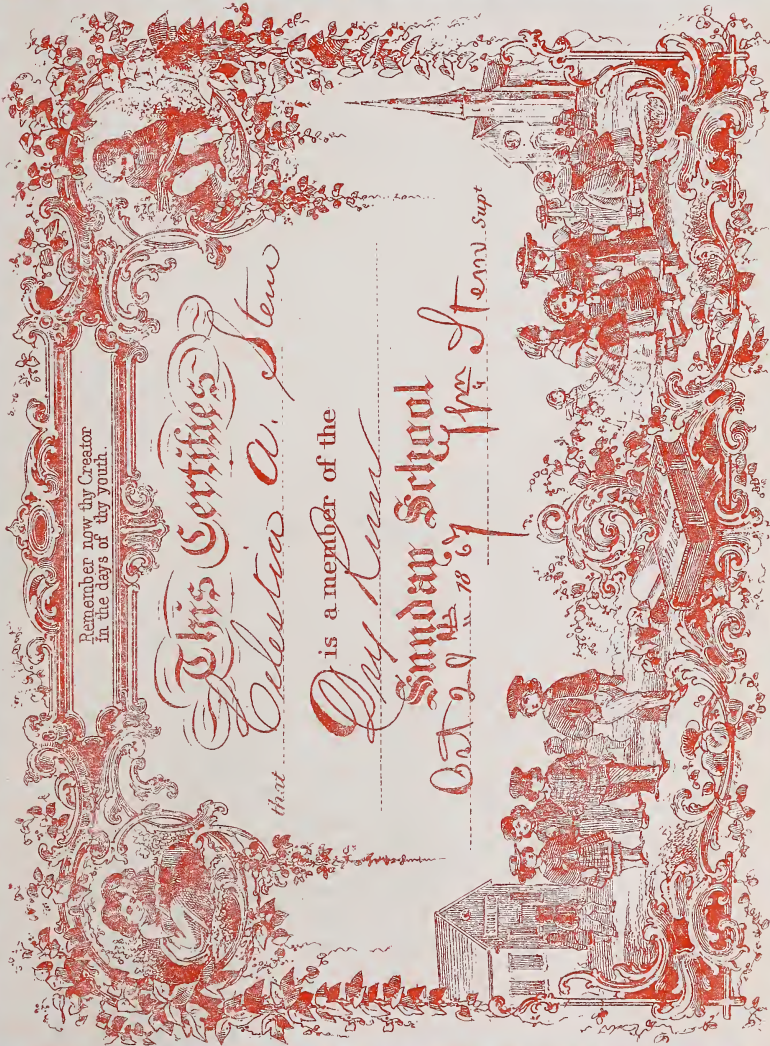 Remember now thy Creator
in the days of thy youth.
This Certifies
that Celestia A. Stem
is a member of the
Dry Run
Sunday School
Oct 29th 1867 Wm Stem Supt